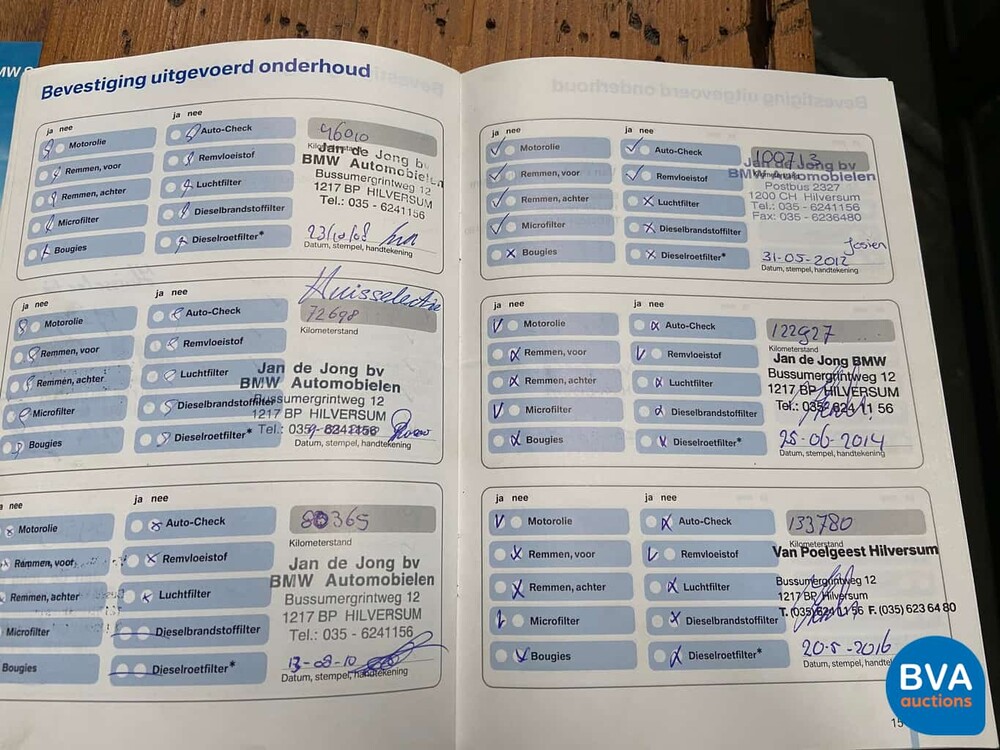 Bevestiging uitgevoerd onderhoud
ja nee
ja nee
Motorolie
Remmen, voor
Remmen, achter
Microfilter
Bougies
Auto-Check
Remvloeistof
Luchtfilter
Dieselbrandstoffilter
Dieselroetfilter*
46010
Kilometerstand
Jan de Jong bv
BMW Automobielen
Bussumergrintweg 12
1217 BP HILVERSUM
Tel.: 035 - 6241156
23/10/08
Datum, stempel, handtekening
ja nee
ja nee
Motorolie
Remmen, voor
Remmen, achter
Microfilter
Bougies
Auto-Check
Remvloeistof
Luchtfilter
Dieselbrandstoffilter
Dieselroetfilter*
Huisselectie
72698
Kilometerstand
Jan de Jong bv
BMW Automobielen
Bussumergrintweg 12
1217 BP HILVERSUM
Tel.: 035 - 6241156
Datum, stempel, handtekening
nee
ja nee
Motorolie
Remmen, voor
Remmen, achter
Microfilter
Bougies
Auto-Check
Remvloeistof
Luchtfilter
Dieselbrandstoffilter
Dieselroetfilter*
80365
Kilometerstand
Jan de Jong bv
BMW Automobielen
Bussumergrintweg 12
1217 BP HILVERSUM
Tel.: 035 - 6241156
13-08-10
Datum, stempel, handtekening
ja nee
ja nee
Motorolie
Remmen, voor
Remmen, achter
Microfilter
Bougies
Auto-Check
Remvloeistof
Luchtfilter
Dieselbrandstoffilter
Dieselroetfilter*
100713
Jan de Jong bv
BMW Automobielen
Postbus 2327
1200 CH Hilversum
Tel.: 035 - 6241156
Fax: 035 - 6236480
Josien
31-05-2012
Datum, stempel, handtekening
ja nee
ja nee
Motorolie
Remmen, voor
Remmen, achter
Microfilter
Bougies
Auto-Check
Remvloeistof
Luchtfilter
Dieselbrandstoffilter
Dieselroetfilter*
122927
Kilometerstand
Jan de Jong BMW
Bussumergrintweg 12
1217 BP HILVERSUM
Tel.: 035 - 624 11 56
25-06-2014
Datum, stempel, handtekening
ja nee
ja nee
Motorolie
Remmen, voor
Remmen, achter
Microfilter
Bougies
Auto-Check
Remvloeistof
Luchtfilter
Dieselbrandstoffilter
Dieselroetfilter*
133780
Kilometerstand
Van Poelgeest Hilversum
Bussumergrintweg 12
1217 BP Hilversum
T. (035) 624 11 56 F. (035) 623 64 80
20-5-2016
Datum, stempel, handte
15
BVA
auctions